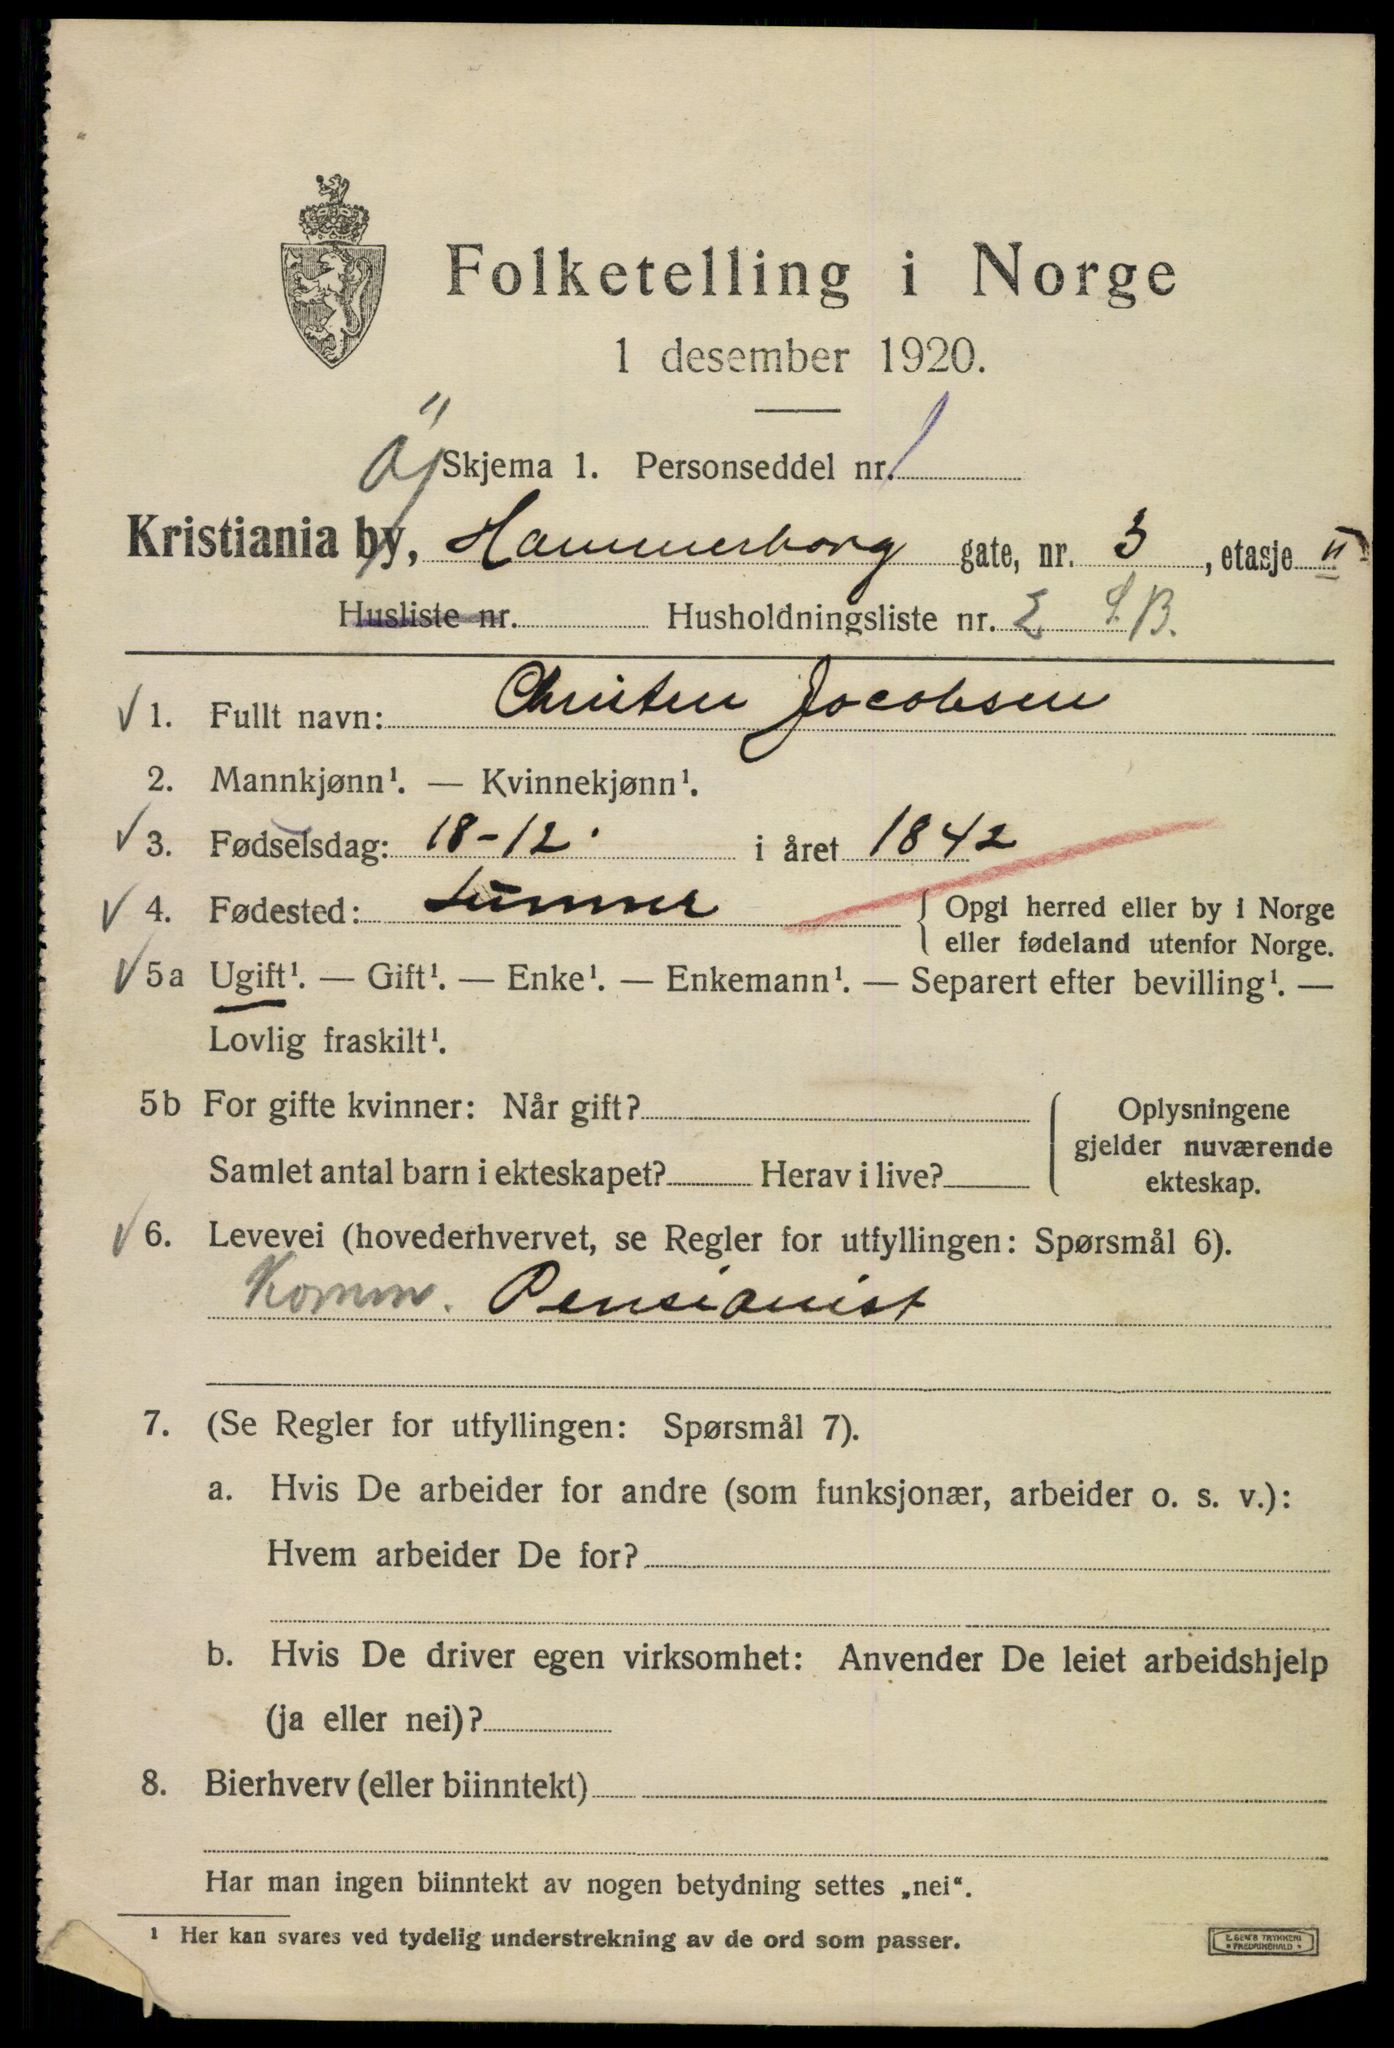 Folketelling i Norge
1 desember 1920.
Skjema 1. Personseddel nr. 1
Kristiania by, Hammerborg gate, nr. 3, etasje II
Husliste nr. Husholdningsliste nr.
1. Fullt navn: Christen Jacobsen
2. Mannkjønn¹. — Kvinnekjønn¹.
3. Fødselsdag: 18-12. i året 1842
4. Fødested: Lunner { Opgi herred eller by i Norge
eller fødeland utenfor Norge.
5a Ugift¹. — Gift¹. — Enke¹. — Enkemann¹. — Separert efter bevilling¹. —
Lovlig fraskilt¹.
5b For gifte kvinner: Når gift?
Samlet antal barn i ekteskapet? Herav i live?
Oplysningene
gjelder nuværende
ekteskap.
6. Levevei (hovederhvervet, se Regler for utfyllingen: Spørsmål 6).
Komm. Pensionist
7. (Se Regler for utfyllingen: Spørsmål 7).
a. Hvis De arbeider for andre (som funksjonær, arbeider o. s. v.):
Hvem arbeider De for?
b. Hvis De driver egen virksomhet: Anvender De leiet arbeidshjelp
(ja eller nei)?
8. Bierhverv (eller biinntekt)
Har man ingen biinntekt av nogen betydning settes „nei“.
¹ Her kan svares ved tydelig understrekning av de ord som passer.
TRYKKERI
FREDRIKSHALD